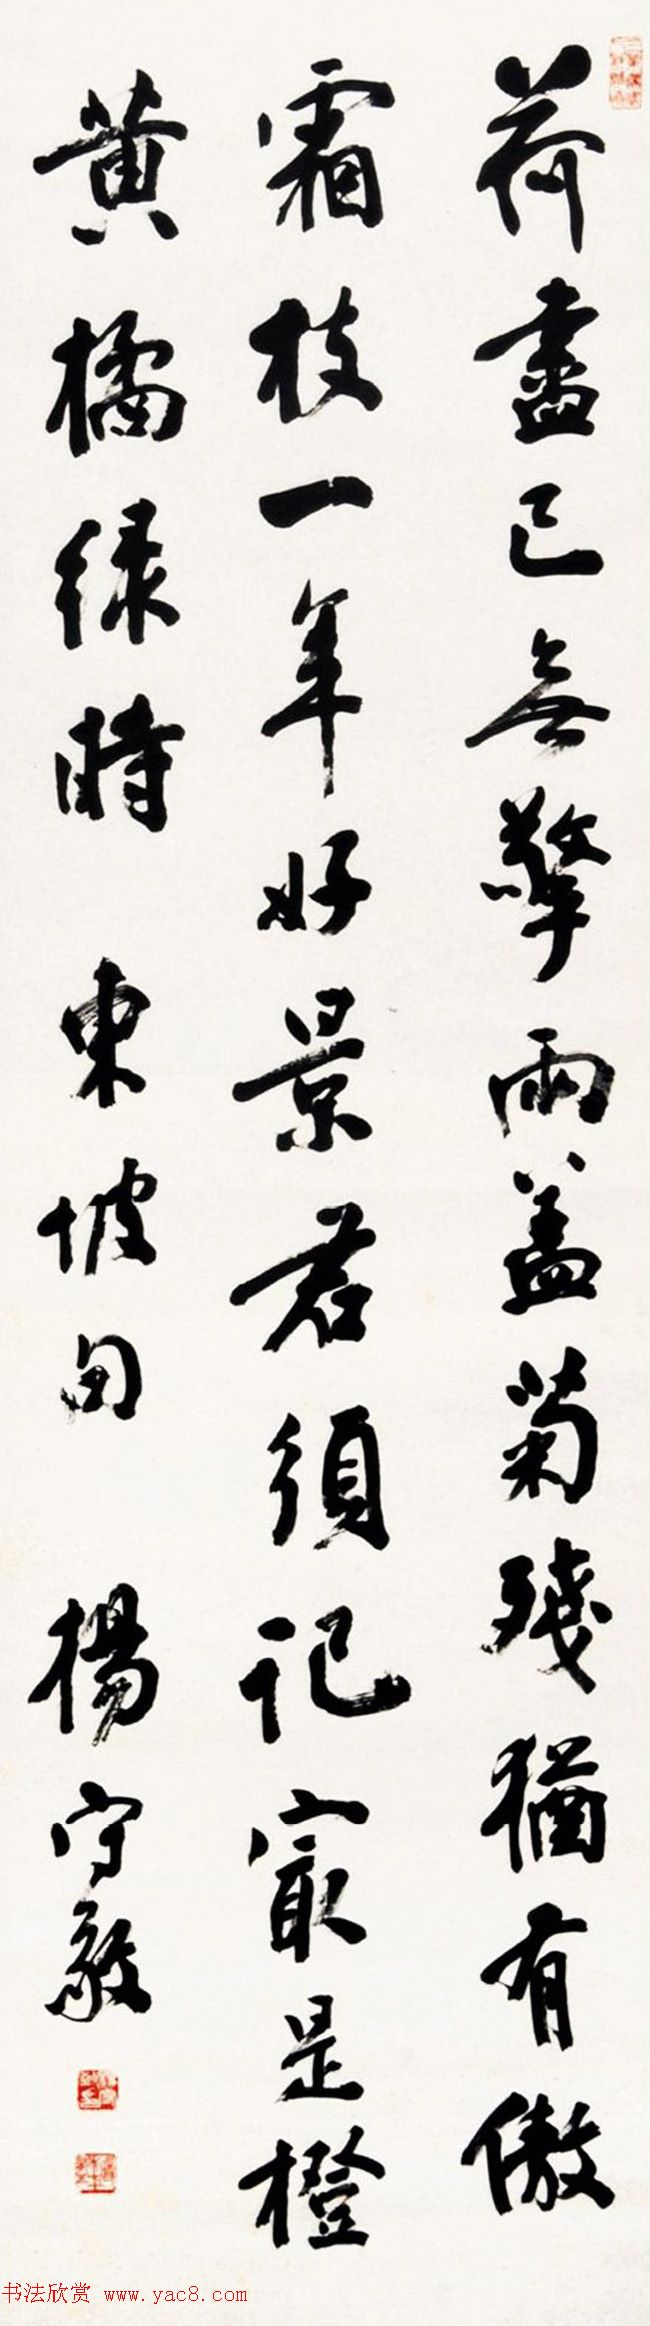 荷盡已無擎雨盖菊殘猶有傲
霜枝一年好景君須記寂是橙
黄橘緑時 東坡句 楊守敬
书法欣赏 www.yac8.com